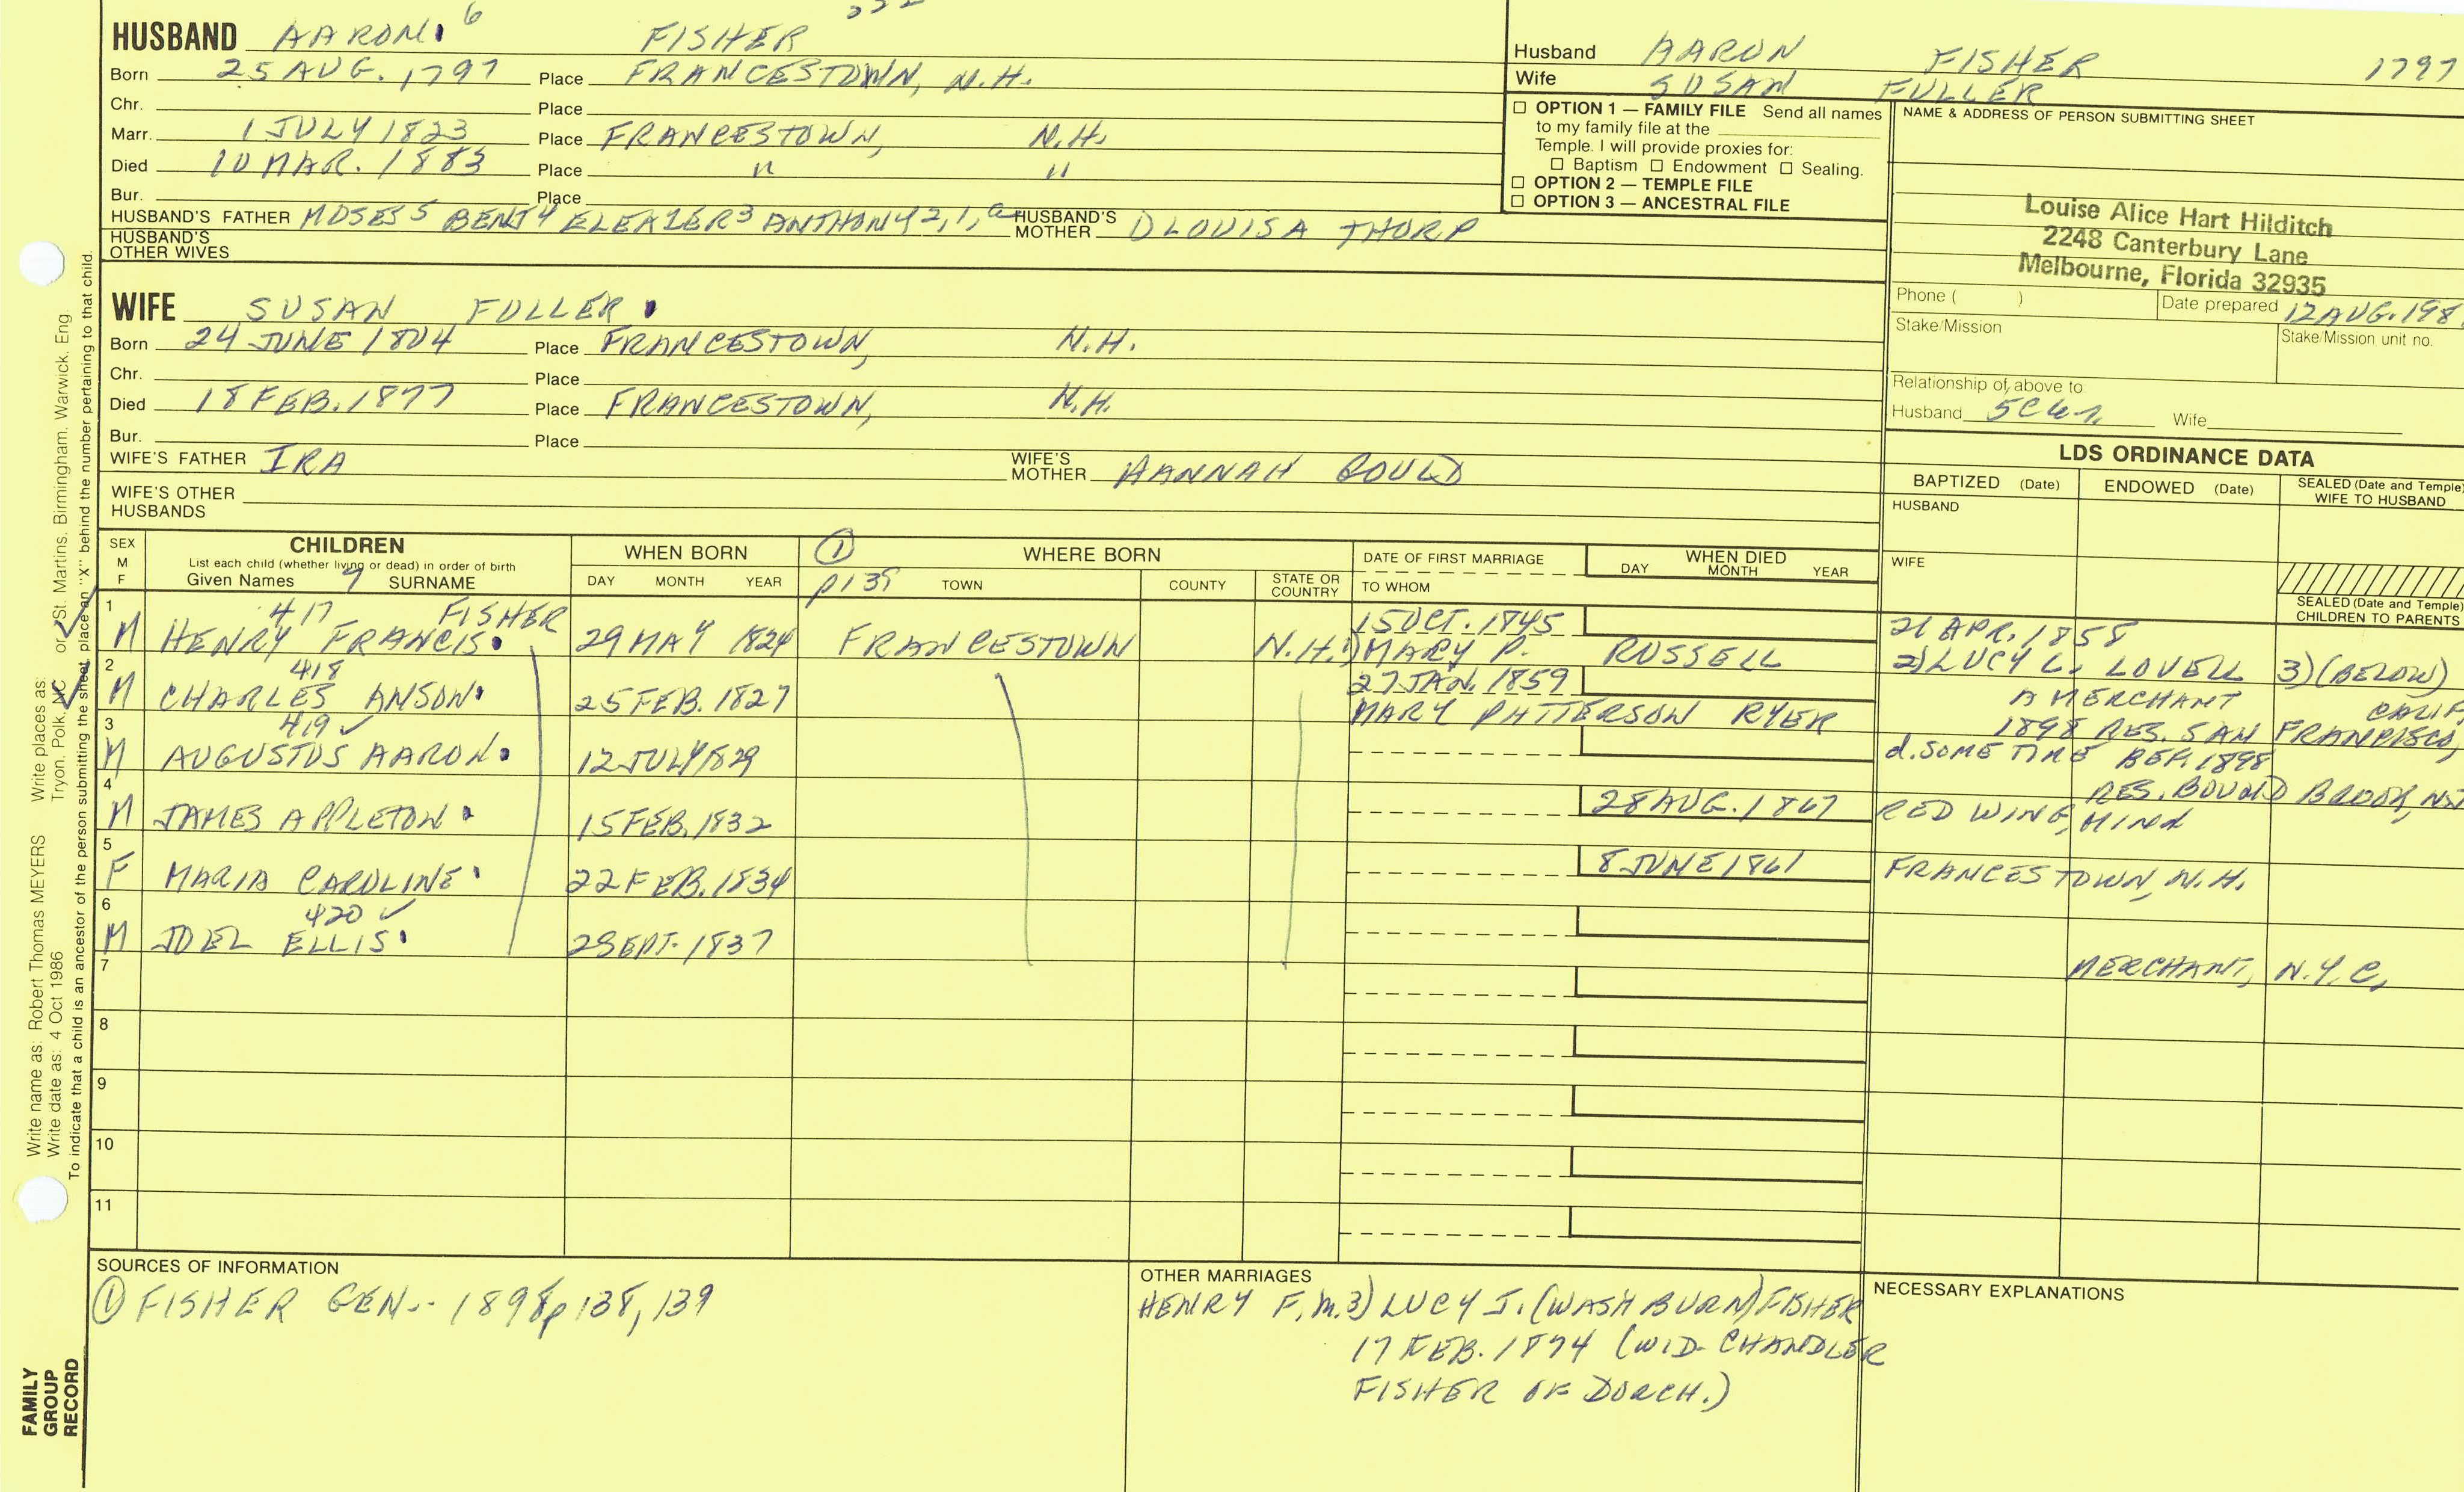 HUSBAND AARON 6 FISHER
Born 25 AUG. 1797 Place FRANCESTOWN, N.H.
Chr. Place
Marr. 1 JULY 1823 Place FRANCESTOWN, N.H.
Died 10 MAR. 1883 Place " "
Bur. Place
HUSBAND'S FATHER MOSES 5 BENJ 4 ELEAZER 3 ANTHONY 2, 1, a HUSBAND'S MOTHER D LOUISA THORP
HUSBAND'S OTHER WIVES
Husband AARON FISHER 1797
Wife SUSAN FULLER
☐ OPTION 1 — FAMILY FILE Send all names
to my family file at the
Temple. I will provide proxies for:
☐ Baptism ☐ Endowment ☐ Sealing.
☐ OPTION 2 — TEMPLE FILE
☐ OPTION 3 — ANCESTRAL FILE
NAME & ADDRESS OF PERSON SUBMITTING SHEET
Louise Alice Hart Hilditch
2248 Canterbury Lane
Melbourne, Florida 32935
Phone ( ) Date prepared 12 AUG. 198
Stake/Mission Stake/Mission unit no.
Relationship of above to
Husband 5C Wife
WIFE SUSAN FULLER
Born 24 JUNE 1804 Place FRANCESTOWN, N.H.
Chr. Place
Died 18 FEB. 1877 Place FRANCESTOWN, N.H.
Bur. Place
WIFE'S FATHER IRA WIFE'S MOTHER HANNAH BOULD
WIFE'S OTHER HUSBANDS
LDS ORDINANCE DATA
BAPTIZED (Date) ENDOWED (Date) SEALED (Date and Temple) WIFE TO HUSBAND
HUSBAND
WIFE
SEALED (Date and Temple) CHILDREN TO PARENTS
SEX M F CHILDREN WHEN BORN ① WHERE BORN DATE OF FIRST MARRIAGE WHEN DIED
List each child (whether living or dead) in order of birth
Given Names 7 SURNAME DAY MONTH YEAR p 139 TOWN COUNTY STATE OR COUNTRY TO WHOM DAY MONTH YEAR
1 417 FISHER 15 OCT. 1845 21 APR. 1858
M HENRY FRANCIS 29 MAY 1824 FRANCESTOWN N.H. 1) MARY P. RUSSELL 2) LUCY L. LOVELL 3) (BELOW)
2 418 27 JAN. 1859 A MERCHANT CALIF
M CHARLES ANSON 25 FEB. 1827 MARY PATTERSON RYER 1898 RES. SAN FRANCISCO,
3 419 ✓ d. SOME TIME BEF. 1898
M AUGUSTUS AARON 12 JULY 1829
4 28 AUG. 1867 RES. BOUND BROOK, NJ
M JAMES APPLETON 15 FEB. 1832 RED WING, MINN
5 8 JUNE 1861 FRANCESTOWN, N.H.
F MARIA CAROLINE 22 FEB. 1834
6 420 ✓
M JOEL ELLIS 2 SEPT. 1837
7 MERCHANT, N.Y.C.
8
9
10
11
SOURCES OF INFORMATION
① FISHER GEN.- 1898 p 138, 139
OTHER MARRIAGES
HENRY F. m. 3) LUCY J. (WASHBURN) FISHER
17 FEB. 1874 (WID. CHANDLER
FISHER OF DORCH.)
NECESSARY EXPLANATIONS
Write name as: Robert Thomas MEYERS Write places as: Tryon, Polk, NC or St. Martins, Birmingham, Warwick, Eng
Write date as: 4 Oct 1986
To indicate that a child is an ancestor of the person submitting the sheet, place an "X" behind the number pertaining to that child.
FAMILY
GROUP
RECORD